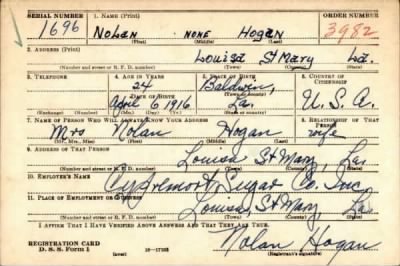 SERIAL NUMBER 1. NAME (Print) ORDER NUMBER
1696 NOLAN NONE HOGAN 3982
(First) (Middle) (Last)
2. ADDRESS (Print)
Louisa St Mary La.
(Number and street or R. F. D. number) (Town) (County) (State)
3. TELEPHONE 4. AGE IN YEARS 5. PLACE OF BIRTH 6. COUNTRY OF CITIZENSHIP
24 Baldwin,
DATE OF BIRTH (Town or county)
April 6 1916 La. U.S.A.
(Exchange) (Number) (Mo.) (Day) (Yr.) (State or country)
7. NAME OF PERSON WHO WILL ALWAYS KNOW YOUR ADDRESS 8. RELATIONSHIP OF THAT PERSON
Mrs Nolan Hogan wife
(Mr., Mrs., Miss) (First) (Middle) (Last)
9. ADDRESS OF THAT PERSON
Louisa St Mary, La
(Number and street or R. F. D. number) (Town) (County) (State)
10. EMPLOYER'S NAME
Cypremort Sugar Co. Inc.
11. PLACE OF EMPLOYMENT OR BUSINESS
Louisa, St Mary La
(Number and street or R. F. D. number) (Town) (County) (State)
I AFFIRM THAT I HAVE VERIFIED ABOVE ANSWERS AND THAT THEY ARE TRUE.
REGISTRATION CARD Nolan Hogan
D. S. S. Form 1 (over) (Registrant's signature)